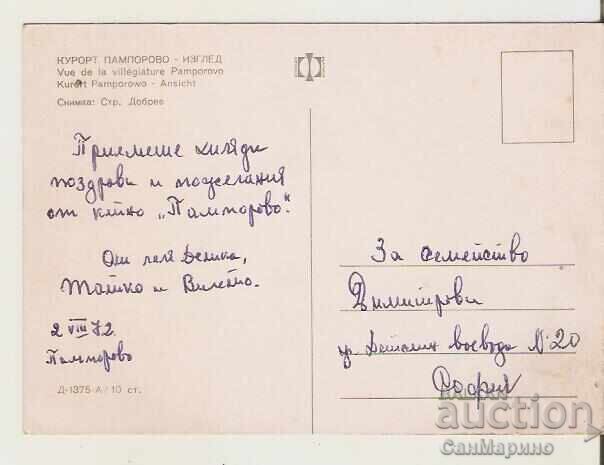 КУРОРТ ПАМПОРОВО - ИЗГЛЕД
Vue de la villégiature Pamporovo
Kurort Pamporowo - Ansicht
Снимка: Стр. Добрев
Приемете хиляди
поздрави и пожелания
от к-но „Пампорово“.
От леля Денка,
Татко и Вилето.
2 VIII 72
Пампорово
Д-1375-А / 10 ст.
За семейство
Димитрови
ул. войвода № 20
София
auction
СанМарино